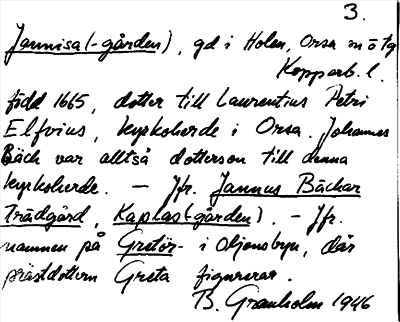 3.
Jannisa (-gården), gd i Holen, Orsa sn ö tg
Kopparb. l.
född 1665, dotter till Laurentius Petri
Elfvius, kyrkoherde i Orsa. Johannes
Bäck var alltså dotterson till denna
kyrkoherde. – Jfr. Jannus Bäckar
Trädgård, Kaplas(-gården). – Jfr.
namnen på Gretör- i Oljonsbyn, där
prästdottern Greta figurerar.
B. Granholm 1946